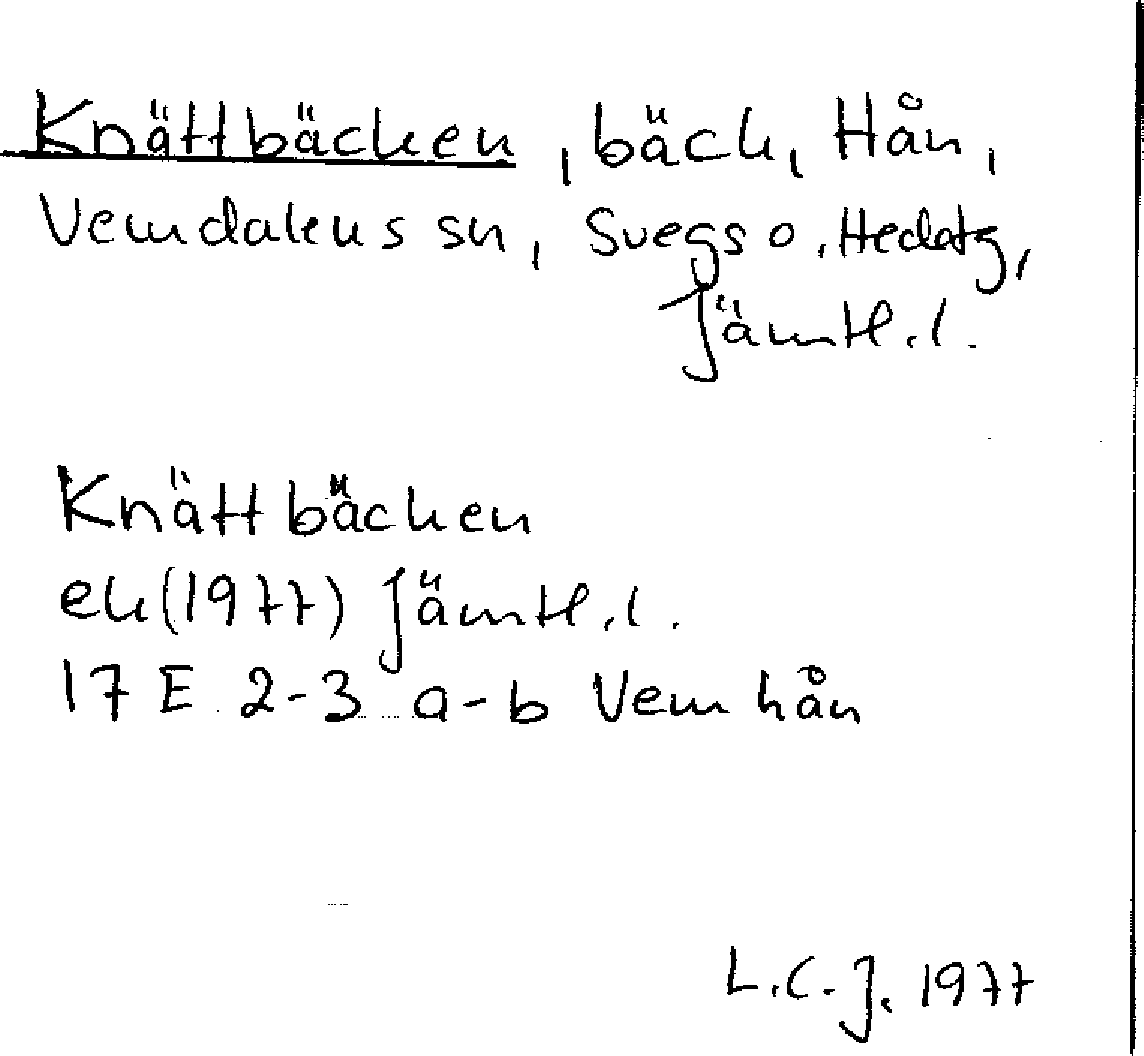 Knättbäcken, bäck, Hån,
Vemdalens sn, Svegs o, Hedatg,
Jämtl.l.
Knättbäcken
ek(1977) Jämtl.l.
17 E 2-3 a-b Vemhån
L.C.J. 1977